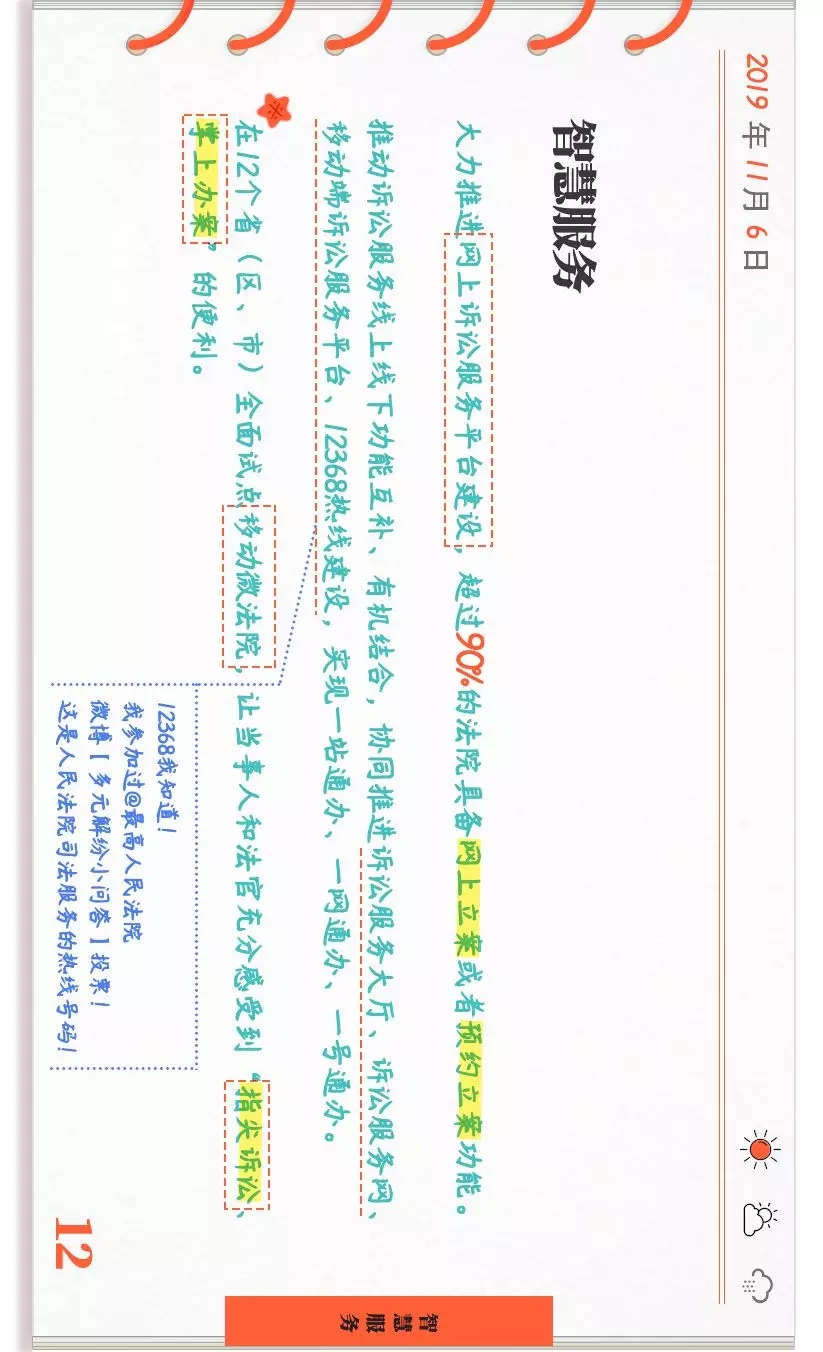 2019年11月6日
智慧服务
大力推进网上诉讼服务平台建设，超过90%的法院具备网上立案或者预约立案功能。
推动诉讼服务线上线下功能互补、有机结合，协同推进诉讼服务大厅、诉讼服务网、
移动端诉讼服务平台、12368热线建设，实现一站通办、一网通办、一号通办。
在12个省（区、市）全面试点移动微法院，让当事人和法官充分感受到“指尖诉讼、
掌上办案”的便利。
12368我知道！
我参加过@最高人民法院
微博【多元解纷小问答】投票！
这是人民法院司法服务的热线号码！
12
智慧服务